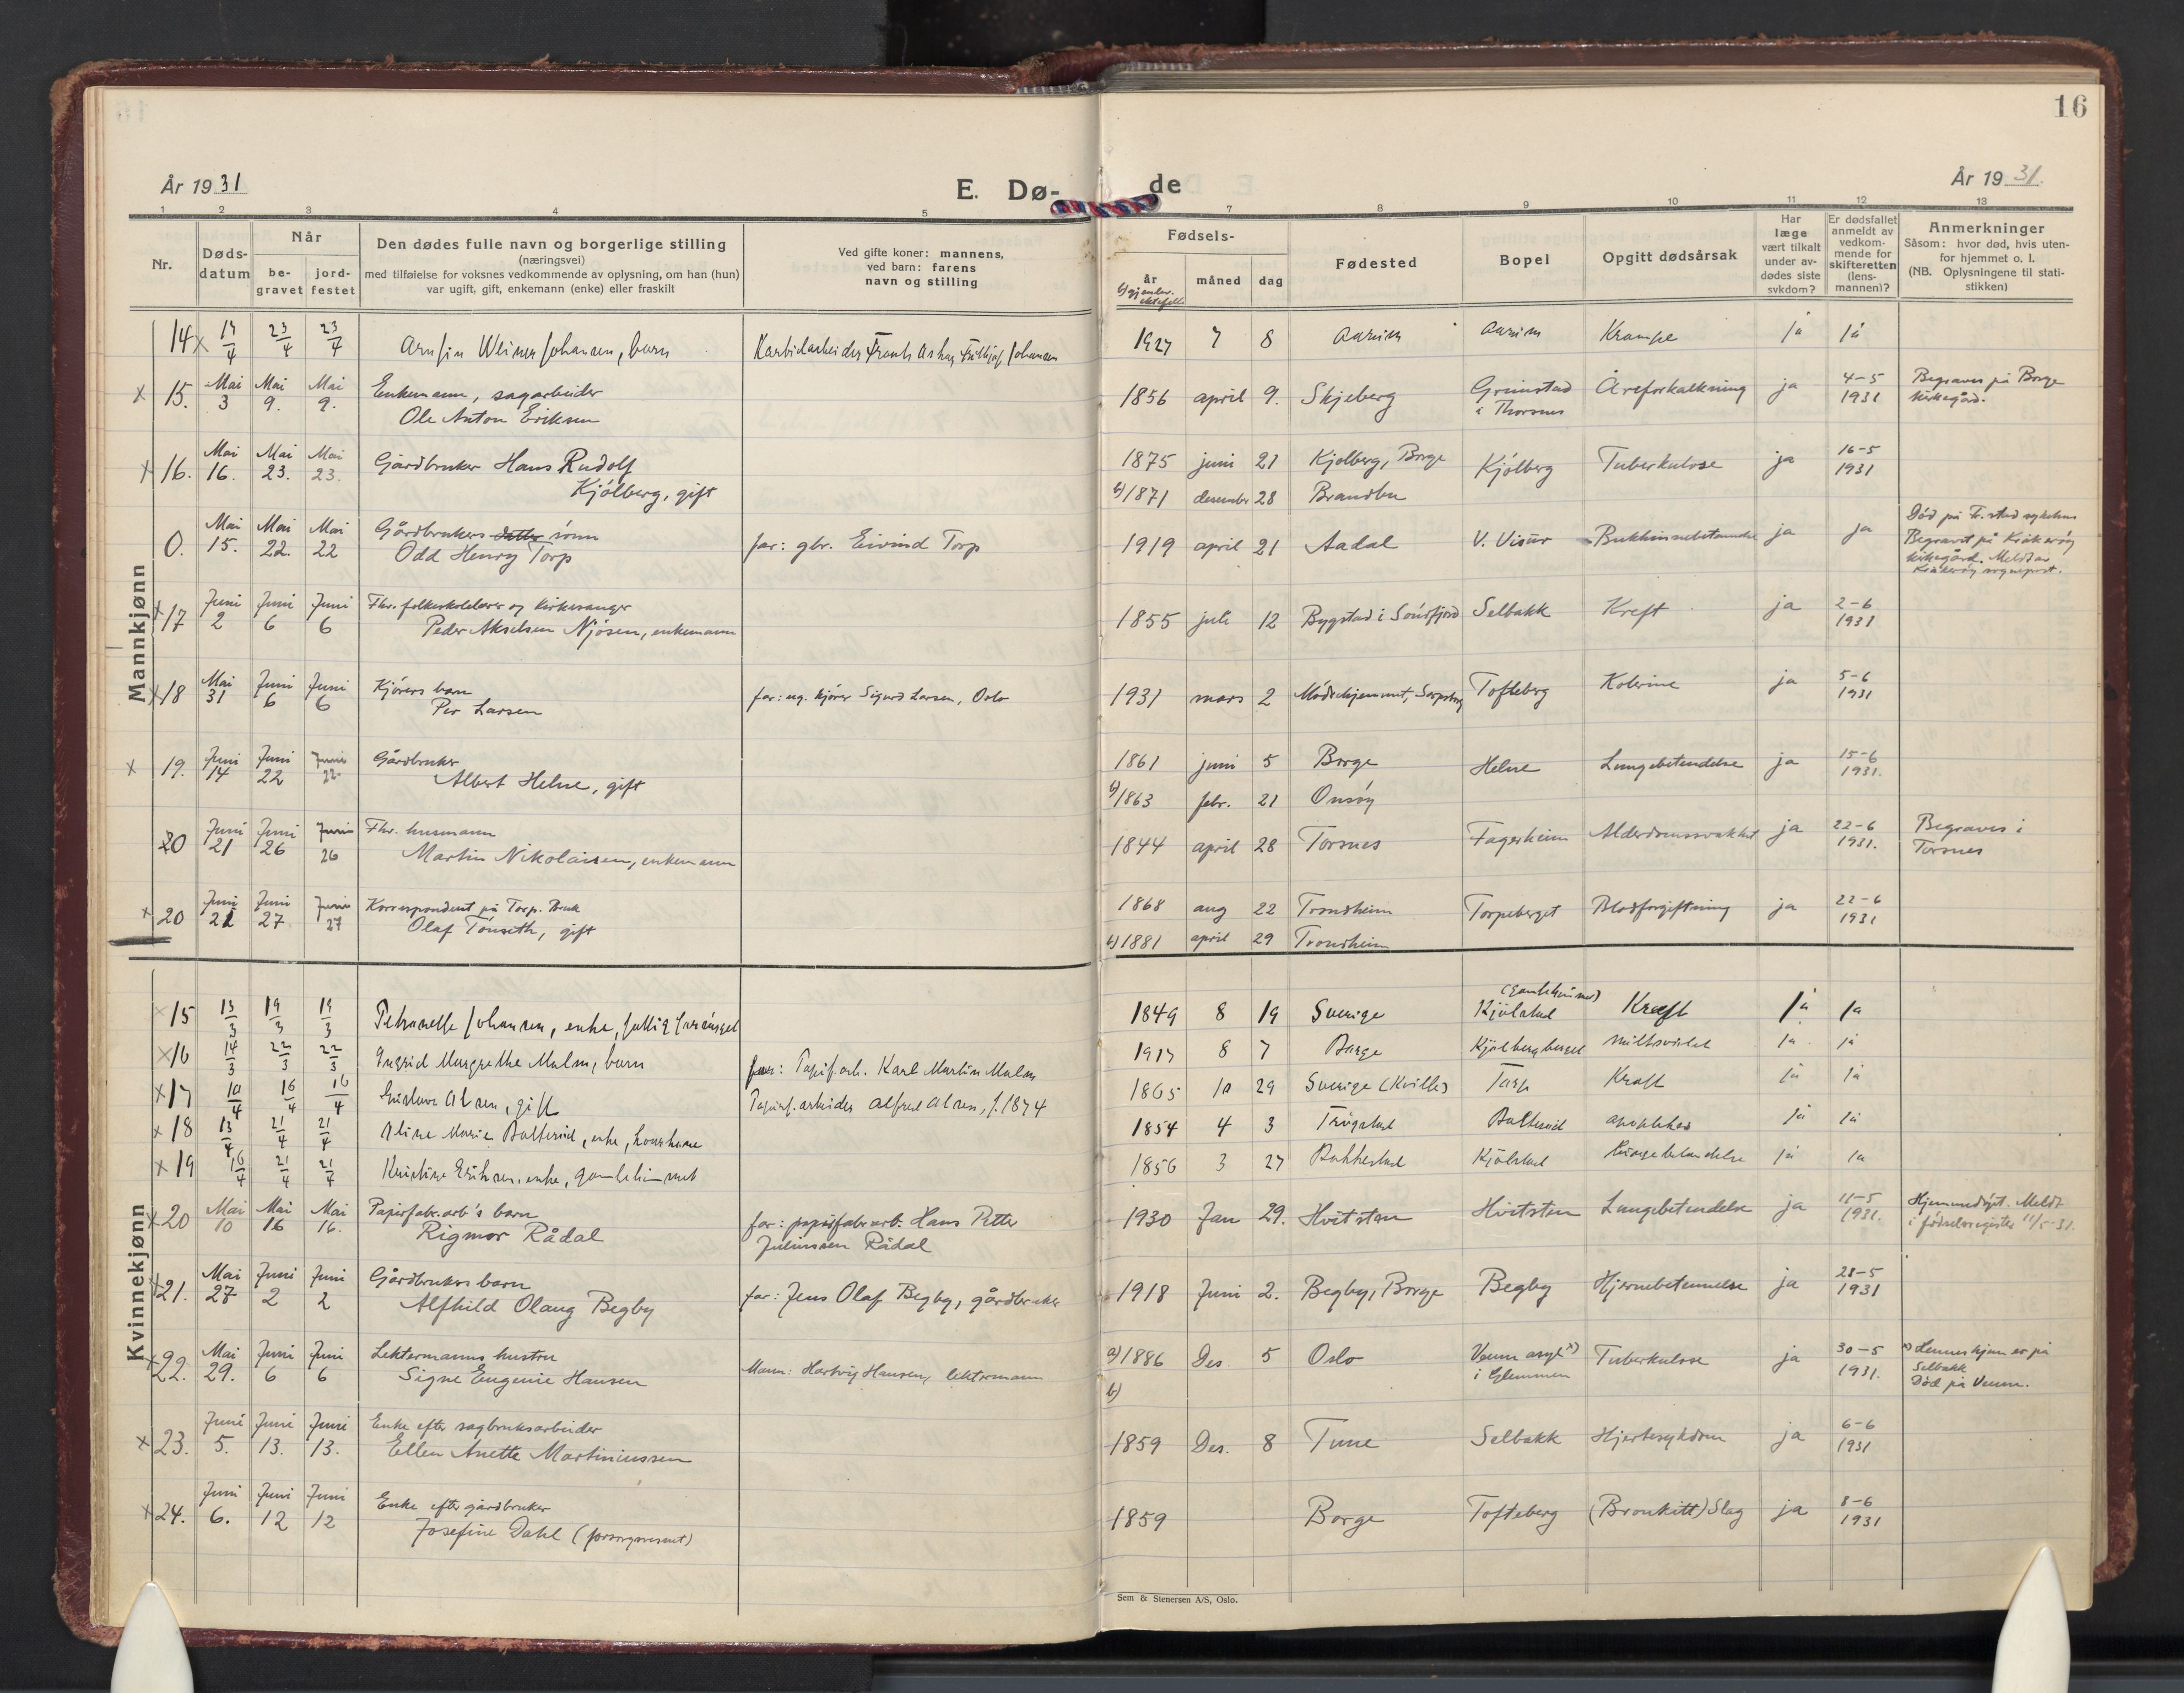 16
År 1931
E. Dø-
de
År 1931.
1 2 3 4 5 7 8 9 10 11 12 13
Nr.
Døds-
datum
Når
be-
gravet
jord-
festet
Den dødes fulle navn og borgerlige stilling
(næringsvei)
med tilføielse for voksnes vedkommende av oplysning, om han (hun)
var ugift, gift, enkemann (enke) eller fraskilt
Ved gifte koner: mannens,
ved barn: farens
navn og stilling
Fødsels-
år
måned
dag
Fødested
Bopel
Opgitt dødsårsak
Har
læge
vært tilkalt
under av-
dødes siste
sykdom?
Er dødsfallet
anmeldt av
vedkom-
mende for
skifteretten
(lens-
mannen)?
Anmerkninger
Såsom: hvor død, hvis uten-
for hjemmet o. l.
(NB. Oplysningene til stati-
stikken)
Mannkjønn
14 x 23/4 23/4 Johansen, barn Karbidarbeider Johansen 1927 7 8 Krampe ja ja
x 15. Mai 3 Mai 9. Mai 9. Enkemann, sagarbeider 1856 april 9. Skjeberg Grimstad Åreforkalkning ja 4-5 1931 Begraves på Borge
Ole Anton Eriksen i Thorsnes kirkegård.
x 16. Mai 16. Mai 23. Mai 23. Gårdbruker Hans Rudolf 1875 juni 21 Kjölberg, Borge Kjölberg Tuberkulose ja 16-5 1931
Kjölberg, gift b) 1871 desember 28 Brandbu
0. Mai 15. Mai 22. Mai 22 Gårdbrukers datter sönn far: gbr. Eivind Torp 1919 april 21 Aadal V. Visur Bukhinnebetennelse ja ja Död på Fr.stad sykehus
Odd Henry Torp Begravet på Kråkeröy
kirkegård. Meldt av
Kråkeröy sogneprest.
x 17 Juni 2 Juni 6 Juni 6 Fhv. folkeskolelærer og kirkesanger 1855 juli 12 Bygstad i Söndfjord Selbakk Kreft ja 2-6 1931
Peder Akselsen Njösen, enkemann
x 18 Mai 31 Juni 6 Juni 6 Kjörers barn far: ug. kjörer Sigurd Larsen, Oslo 1931 mars 2 Mödrehjemmet, Sarpsborg Tofteberg Kolerine ja 5-6 1931
Per Larsen
x 19. Juni 14 Juni 22 Juni 22 Gårdbruker 1861 juni 5 Borge Helne Lungebetendelse ja 15-6 1931.
Albert Helne, gift b) 1863 febr. 21 Onsöy
20 Juni 21 Juni 26 Juni 26 Fhv. husmann 1844 april 28 Torsnes Fagerheim Alderdomssvakhet ja 22-6 1931. Begraves i
Martin Nikolaisen, enkemann Torsnes
x 20 Juni 21 Juni 27 Juni 27 Korrespondent på Torp. Bruk 1868 aug 22 Trondheim Torpeberget Blodforgiftning ja 22-6 1931
Olaf Tönseth, gift b) 1881 april 29 Trondheim
Kvinnekjønn
x 15 13/3 19/3 19/3 Petronelle Johansen, enke, 1849 8 19 Sverige (Gamlehjemmet) Kjölstad Kreft ja ja
x 16 14/3 22/3 22/3 Ingrid Margrethe Malm, barn far: Papirf.arb. Karl Martin Malm 1917 8 7 Borge Kjölbergberget ja ja
x 17 10/4 16/4 16/4 Gustava Olsen, gift Papirf.arbeider Alfred Olsen, f. 1874 1865 10 29 Sverige (Kville) Torp Kreft ja ja
x 18 13/4 21/4 21/4 Oline Marie enke, 1854 4 3 Trögstad apopleksi ja ja
x 19 16/4 21/4 21/4 Kristine Eriksen, enke, gamlehjemmet 1856 3 27 Rakkestad Kjölstad Lungebetendelse ja ja
x 20 Mai 10 Mai 16 Mai 16. Papirfabr.arb's barn far: papirfabr.arb. Hans Petter 1930 Jan 29. Hvitsten Hvitsten Lungebetendelse ja 11-5 1931. Hjemmedöpt. Meldt
Rigmor Rådal Juliussen Rådal i fødselsregister 11/5-31.
x 21. Mai 27 Juni 2 Juni 2 Gårdbrukers barn far: Jens Olaf Begby, gårdbruker 1918 Juni 2. Begby, Borge Begby Hjernebetennelse ja 28-5 1931
Alfhild Olaug Begby
x 22. Mai 29. Juni 6 Juni 6 Lektermanns hustru Mann: Hartvig Hansen, lektermann a) 1886 Des. 5 Oslo Veum asyl x) Tuberkulose ja 30-5 1931. x) Hennes hjem er på
Signe Eugenie Hansen b) i Glemmen Selbakk
Död på Veum.
x 23. Juni 5. Juni 13. Juni 13. Enke efter sagbruksarbeider 1859 Des. 8 Tune Selbakk Hjertesykdom ja 6-6 1931
Ellen Anette Martiniussen
x 24. Juni 6. Juni 12 Juni 12 Enke efter gårdbruker 1859 Borge Tofteberg (Bronkitt) Slag ja 8-6 1931
Josefine Dahl (forsorgsvesenet)
Sem & Stenersen A/S, Oslo.